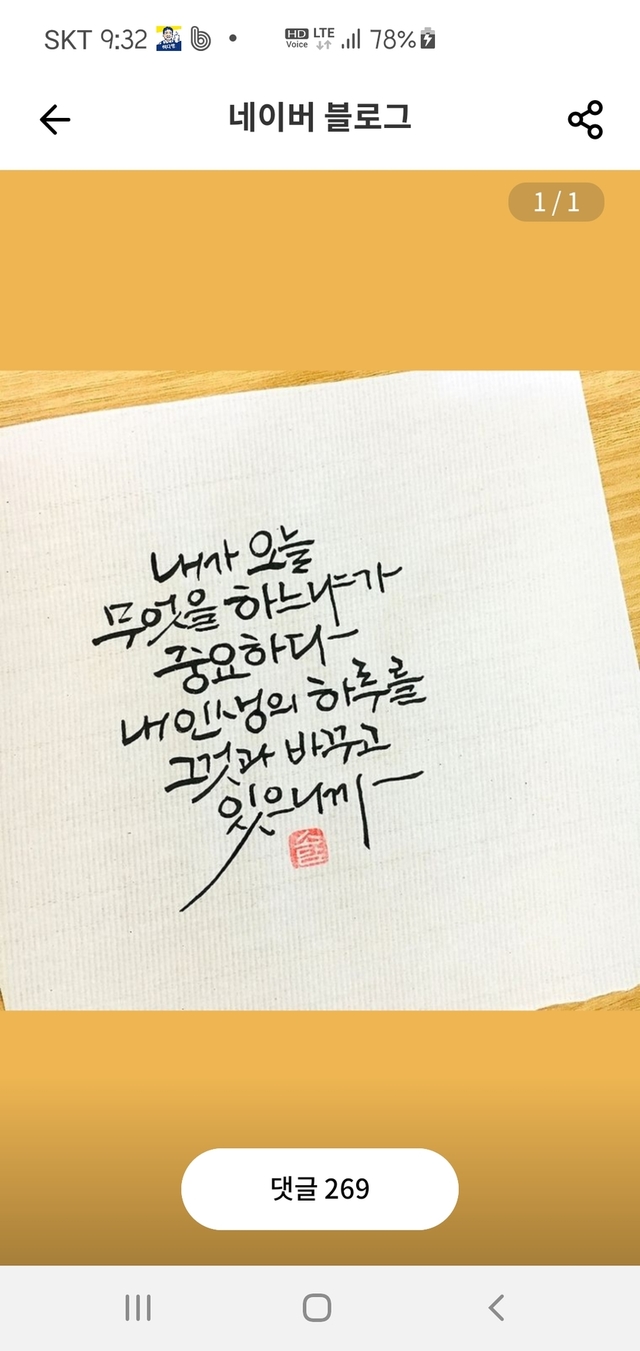 SKT 9:32
HD Voice LTE 78%
네이버 블로그
1 / 1
내가 오늘
무엇을 하느냐가
중요하다
내 인생의 하루를
그것과 바꾸고
있으니까
솔
댓글 269